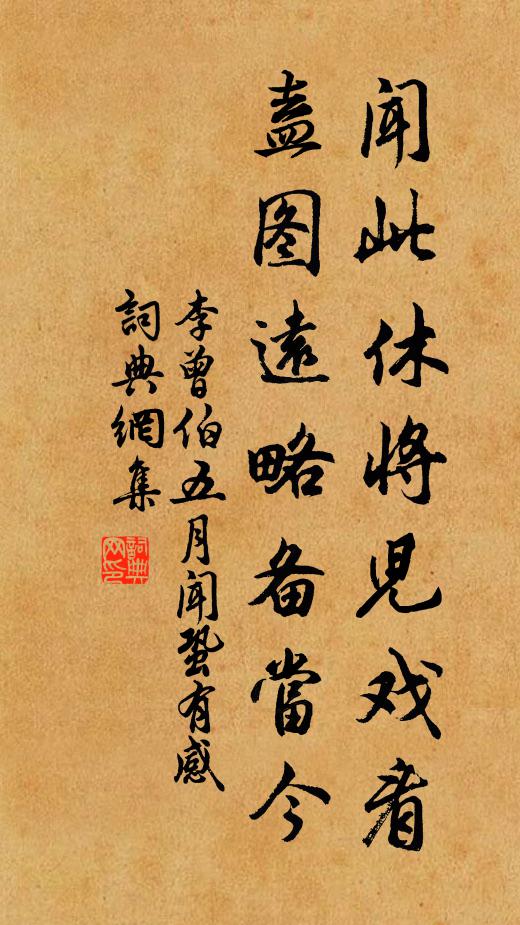 闻此休将児戏看
盍图遠略备當今
李曾伯五月闻蛩有感
詞典網集
詞典网印